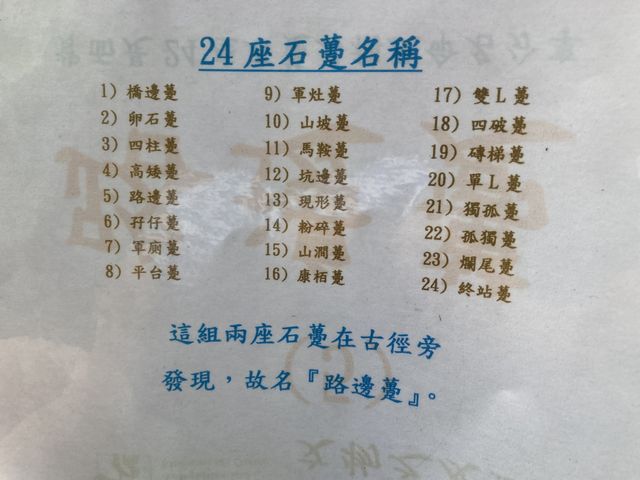 24座石躉名稱
1) 橋邊躉
2) 卵石躉
3) 四柱躉
4) 高矮躉
5) 路邊躉
6) 孖仔躉
7) 軍廁躉
8) 平台躉
9) 軍灶躉
10) 山坡躉
11) 馬鞍躉
12) 坑邊躉
13) 現形躉
14) 粉碎躉
15) 山澗躉
16) 康栢躉
17) 雙L躉
18) 四破躉
19) 磚梯躉
20) 單L躉
21) 獨孤躉
22) 孤獨躉
23) 爛尾躉
24) 終站躉
這組兩座石躉在古徑旁
發現，故名『路邊躉』。